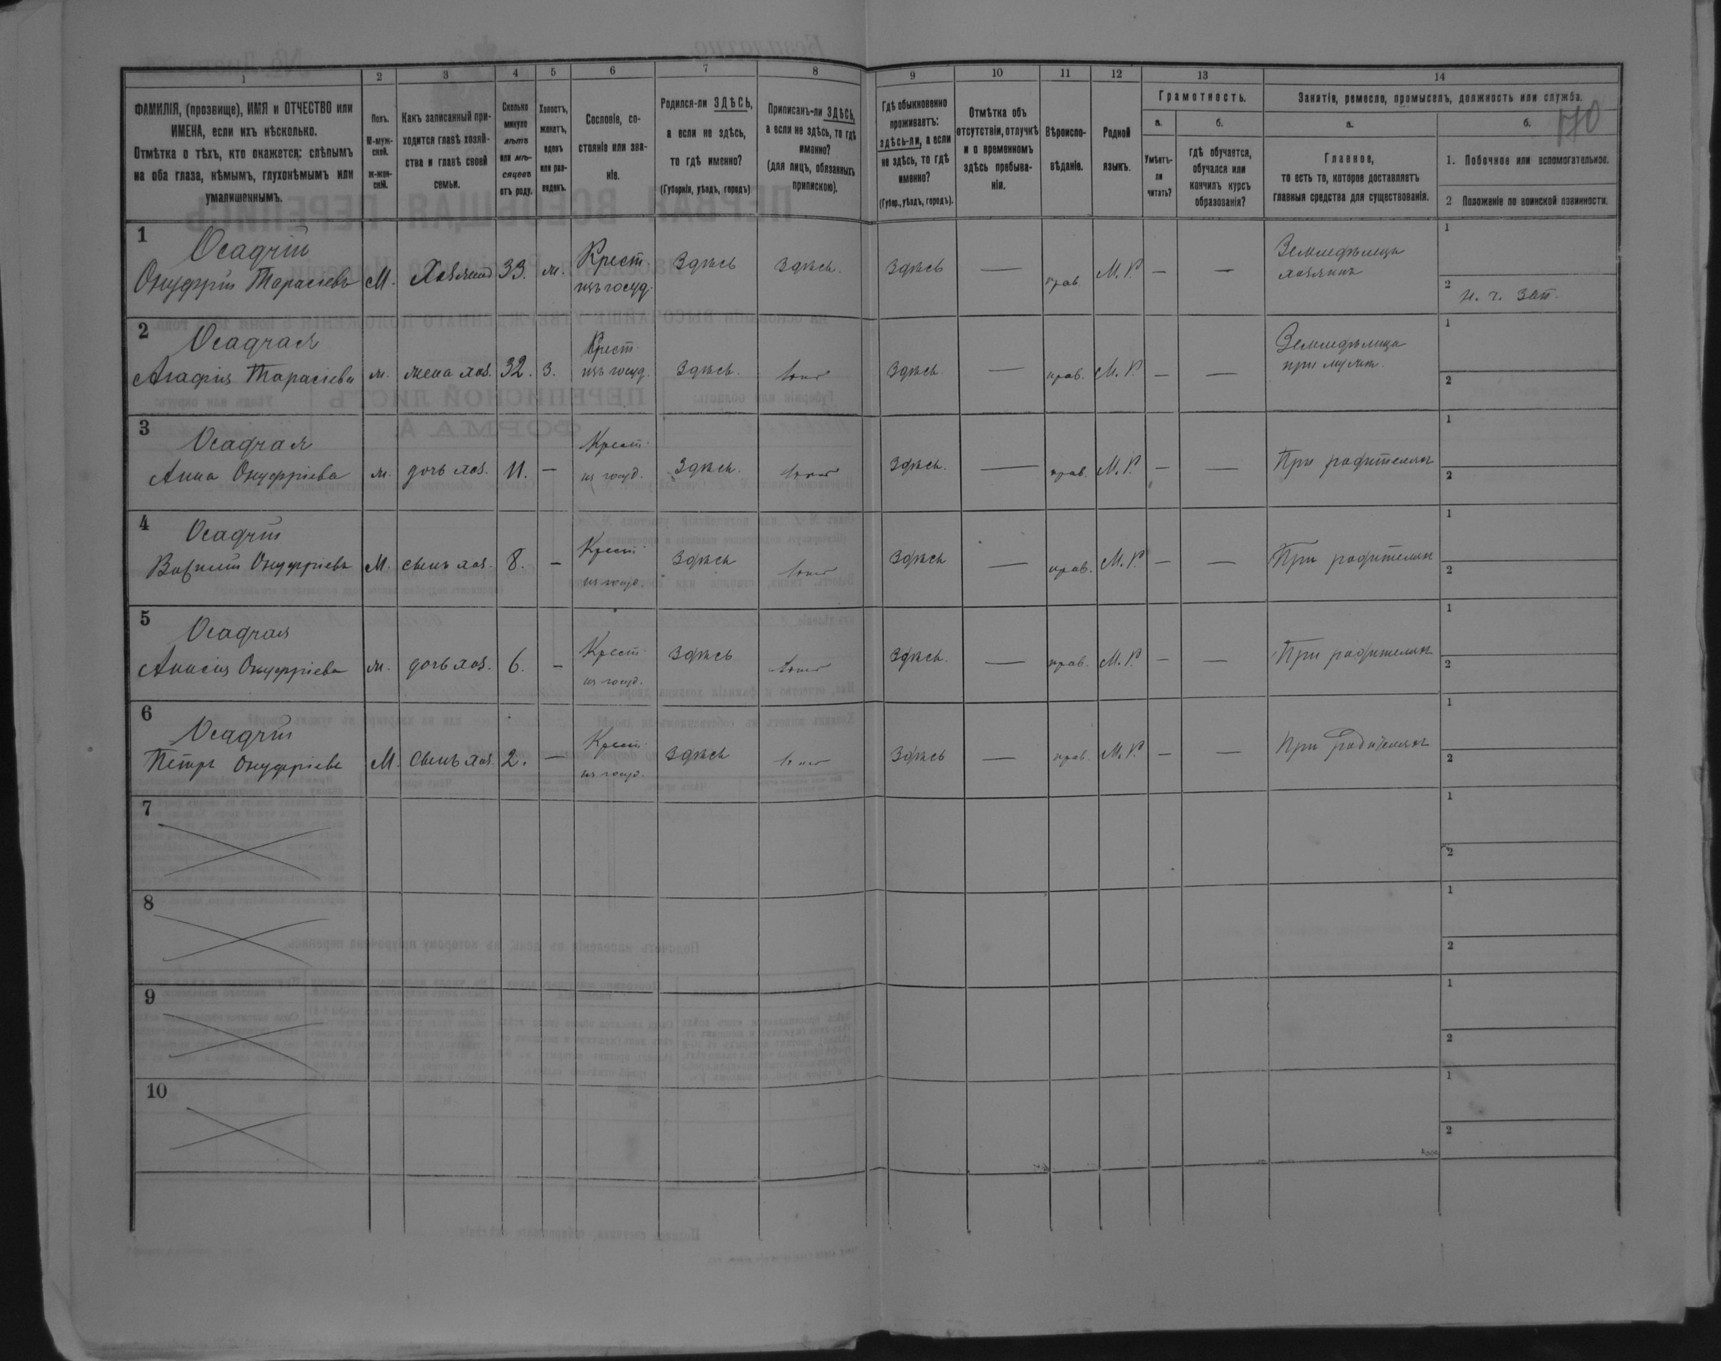 1 2 3 4 5 6 7 8 9 10 11 12 13 14
ФАМИЛІЯ, (прозвище), ИМЯ и ОТЧЕСТВО или
ИМЕНА, если ихъ нѣсколько.
Отмѣтка о тѣхъ, кто окажется: слѣпымъ
на оба глаза, нѣмымъ, глухонѣмымъ или
умалишеннымъ.
Полъ.
М-муж-
ской.
ж-жен-
скій.
Какъ записанный при-
ходится главѣ хозяй-
ства и главѣ своей
семьи.
Сколько
минуло
лѣтъ
или мѣ-
сяцевъ
отъ роду.
Холостъ,
женатъ,
вдовъ
или раз-
веденъ.
Сословіе, со-
стояніе или зва-
ніе.
Родился-ли ЗДѢСЬ,
а если не здѣсь,
то гдѣ именно?
(Губернія, уѣздъ, городъ)
Приписанъ-ли ЗДѢСЬ,
а если не здѣсь, то гдѣ
именно?
(для лицъ, обязанныхъ
припискою).
Гдѣ обыкновенно
проживаетъ:
здѣсь-ли, а если
не здѣсь, то гдѣ
именно?
(Губер., уѣздъ, городъ).
Отмѣтка объ
отсутствіи, отлучкѣ
и о временномъ
здѣсь пребыва-
ніи.
Вѣроиспо-
вѣданіе.
Родной
языкъ.
Грамотность.
а.
Умѣетъ-
ли
читать?
б.
гдѣ обучается,
обучался или
кончилъ курсъ
образованія?
Занятія, ремесло, промыселъ, должность или служба.
а.
Главное,
то есть то, которое доставляетъ
главныя средства для существованія.
б.
1. Побочное или вспомогательное.
2 Положеніе по воинской повинности.
1
Осадчій
Онуфрій Тарасіевъ М. Хозяинъ 33. ж. Крест.
изъ госуд. Здѣсь Здѣсь. Здѣсь — прав. М.Р. — — Земледѣлецъ
хозяинъ
1
2 н. ч. зап.
2
Осадчая
Агафія Тарасіева ж. жена хоз. 32. З. Крест.
изъ госуд. Здѣсь. Здѣсь. — прав. М.Р. — — Земледѣлица
при мужѣ.
1
2
3
Осадчая
Анна Онуфріева ж. дочь хоз. 11. — Крест.
из госуд. Здѣсь. Здѣсь. — прав. М.Р. — — При родителях
1
2
4
Осадчій
Василій Онуфріевъ М. сынъ хоз. 8. — Крест.
из госуд. Здѣсь Здѣсь — прав. М.Р. — — При родителях
1
2
5
Осадчая
Анасія Онуфріева ж. дочь хоз. 6. — Крест.
из госуд. Здѣсь Здѣсь. — прав. М.Р. — — При родителях
1
2
6
Осадчій
Петръ Онуфріевъ М. Сынъ хоз. 2. — Крест.
из госуд. Здѣсь Здѣсь — прав. М.Р. — — При родителях
1
2
7
1
2
8
1
2
9
1
2
10
1
2